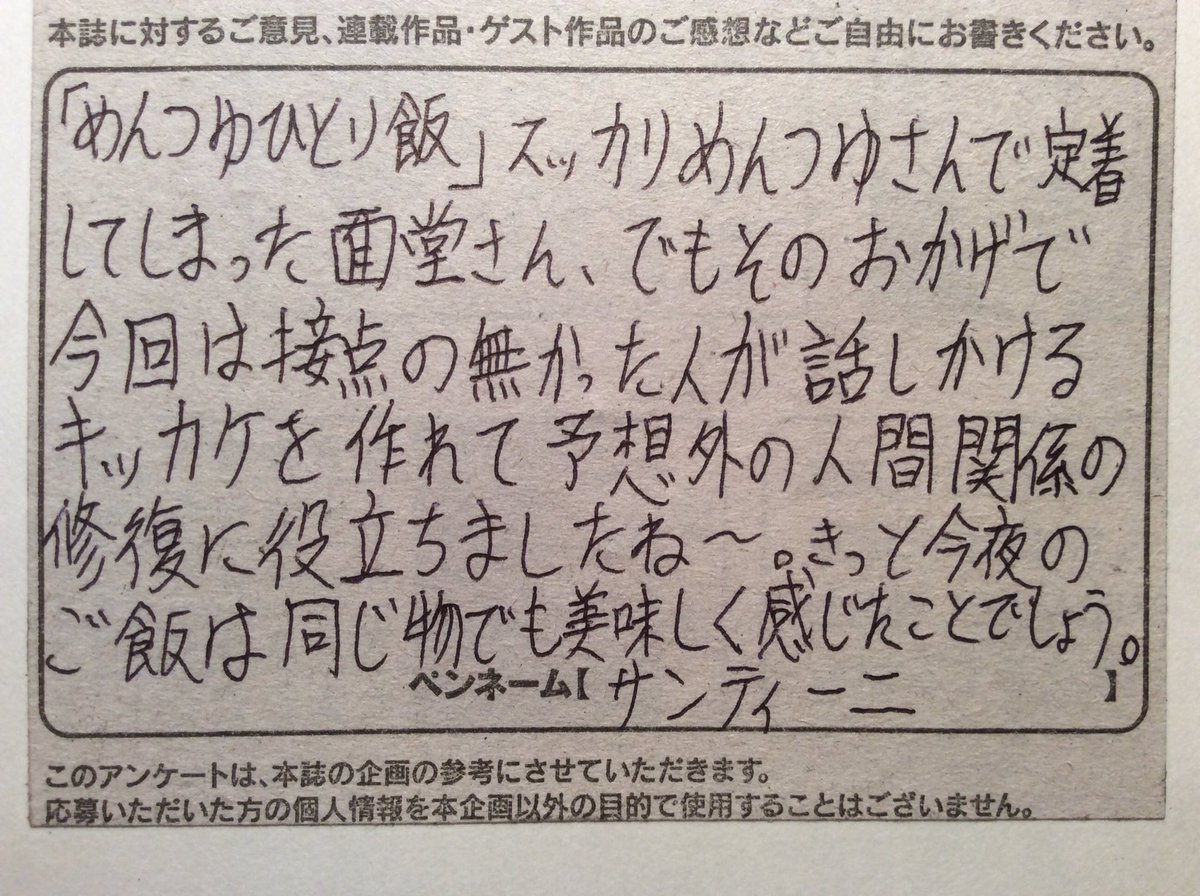 本誌に対するご意見、連載作品・ゲスト作品のご感想などご自由にお書きください。
「めんつゆひとり飯」スッカリめんつゆさんで定着
してしまった面堂さん、でもそのおかげで
今回は接点の無かった人が話しかける
キッカケを作れて予想外の人間関係の
修復に役立ちましたね〜。きっと今夜の
ご飯は同じ物でも美味しく感じたことでしょう。
ペンネーム【サンティーニ】
このアンケートは、本誌の企画の参考にさせていただきます。
応募いただいた方の個人情報を本企画以外の目的で使用することはございません。